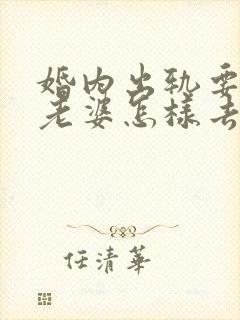 婚内出轨要
老婆怎样去
任清華